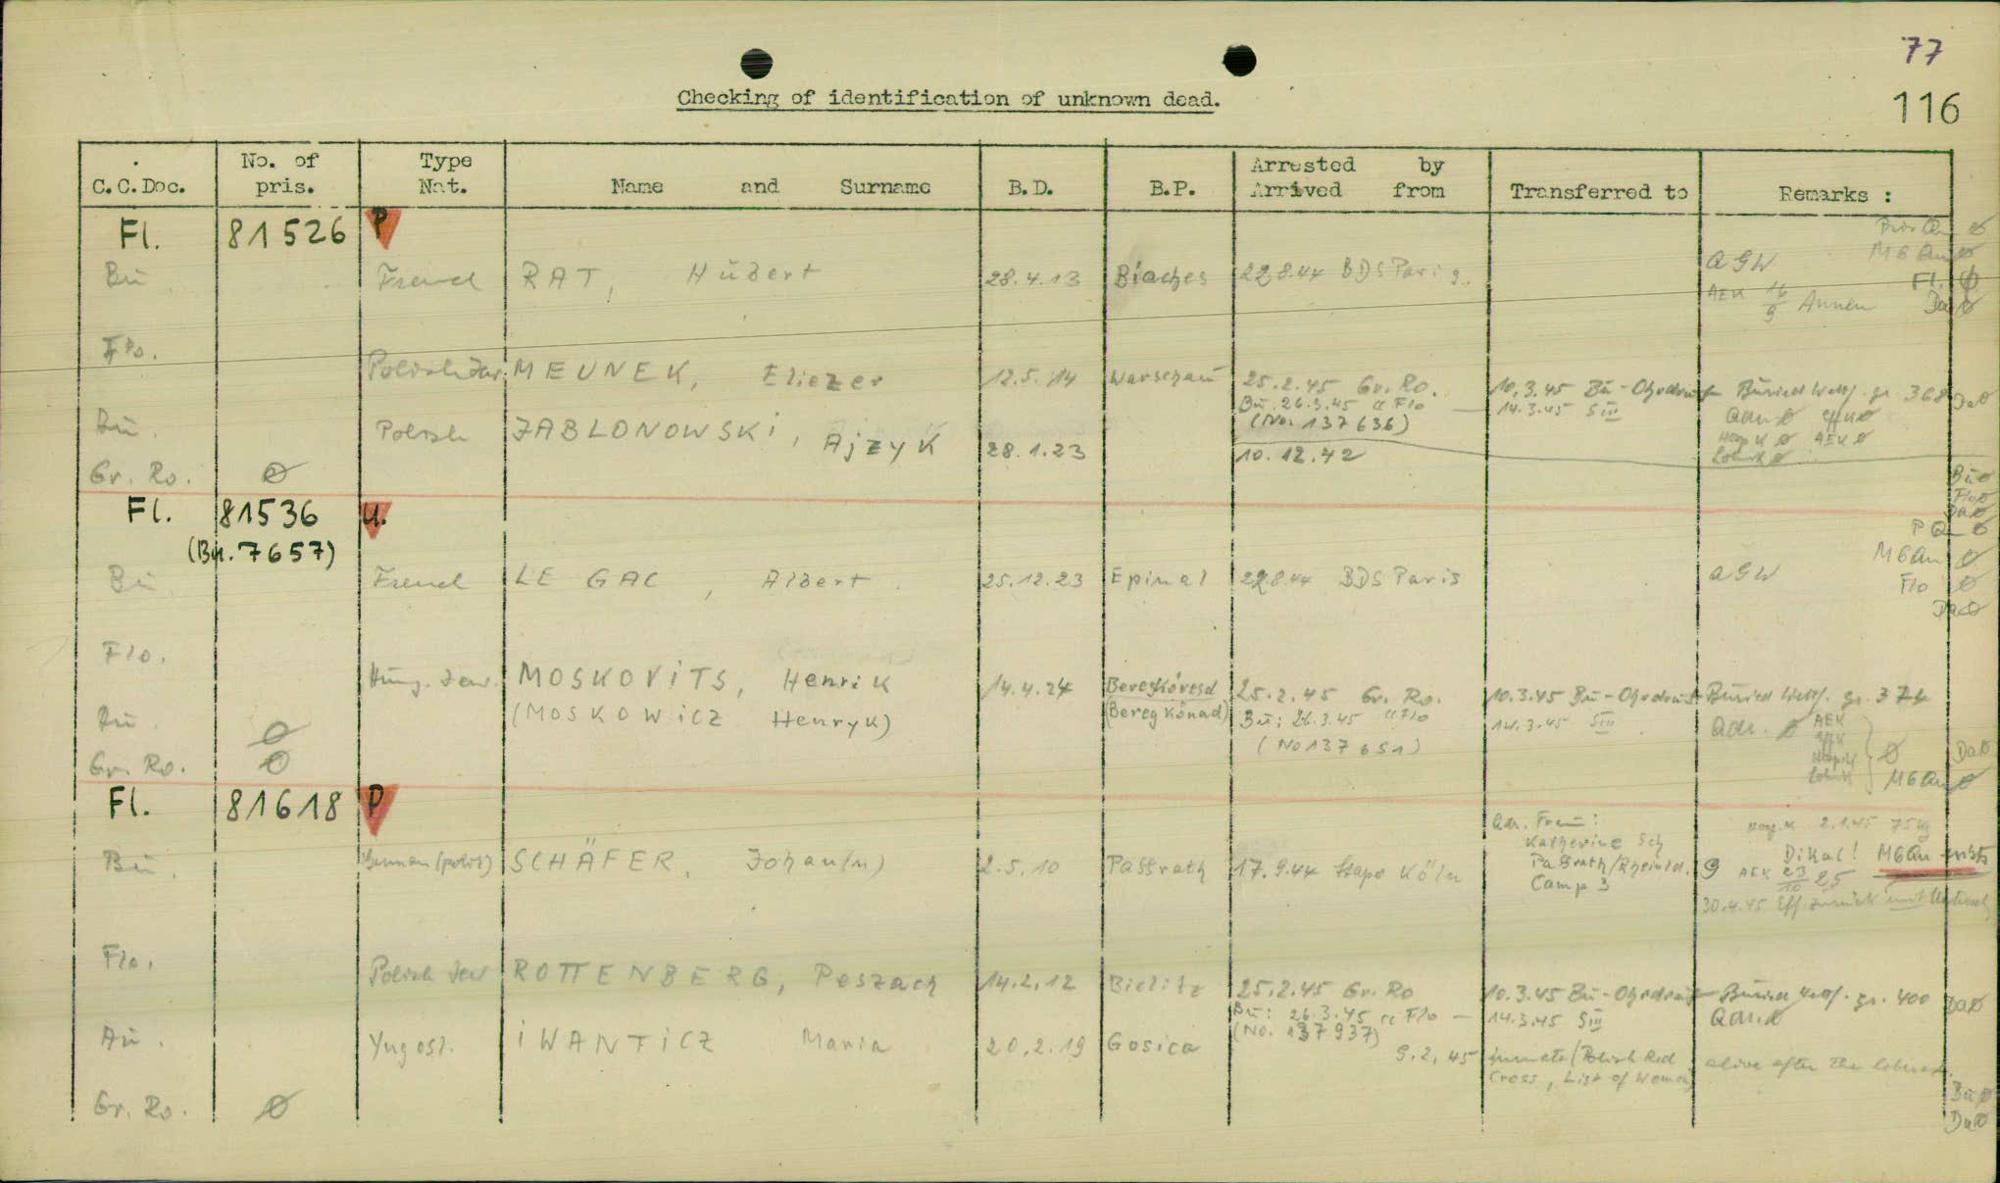 77
116
Checking of identification of unknown dead.
C.C.Doc. No. of pris. Type Nat. Name and Surname B.D. B.P. Arrested by Arrived from Transferred to Remarks :
Fl. 81526 P
Bu French RAT, Hubert 28.4.13 Biaches 22.8.44 BDS Paris AGW
M6 Qu ø
Fl. ø
AEK 16/9 Annen Da ø
Flo. Polish Jew. MEUNEK, Eliezer 12.5.14 Warschau 25.2.45 Gr. Ro. 10.3.45 Bu - Ohrdruf Buried gr. 368 Da ø
Bu: 26.3.45 Flo 14.3.45 SIII
(No. 137636)
Au. Polish JABLONOWSKI, Ajzyk 28.1.23 10.12.42
AEK ø
Gr. Ro. ø
Bu ø
Flo ø
Da ø
Fl. 81536 U.
(Bu. 7657)
P Q ø
M6 Qu ø
Bu French LE GAC, Albert 25.12.23 Epinal 22.8.44 BDS Paris AGW
Flo ø
Da ø
Flo. Hung. Jew. MOSKOVITS, Henrik 14.4.24 Beregkövesd 25.2.45 Gr. Ro. 10.3.45 Bu - Ohrdruf Buried gr. 374
(MOSKOWICZ Henryk) (Bereg Könad) Bu: 26.3.45 Flo 14.3.45 SIII
(No 137651)
AEK
Au. ø
Gr. Ro. ø
Da ø
M6 Qu ø
Fl. 81618 P
Adr. Frau:
Katherine Sch
Paßrath/Rheinld.
Camp 3
2.1.45 75 kg
Dikal! M6 Qu
Bu. German (polit) SCHÄFER, Johan(n) 2.5.10 Paffrath 17.9.44 Stapo Köln
AEK 23/10 25
30.4.45 Eff zurück
Flo. Polish Jew ROTTENBERG, Peszach 14.2.12 Bielitz 25.2.45 Gr. Ro 10.3.45 Bu - Ohrdruf Buried gr. 400 Da ø
Bu: 26.3.45 Flo 14.3.45 SIII
(No. 137937)
Au. Yugosl. IWANTICZ Maria 20.2.19 Gosica 9.2.45 inmate (Polish Red Cross, List of Women) alive after the liberat.
Gr. Ro. ø
Bu ø
Da ø